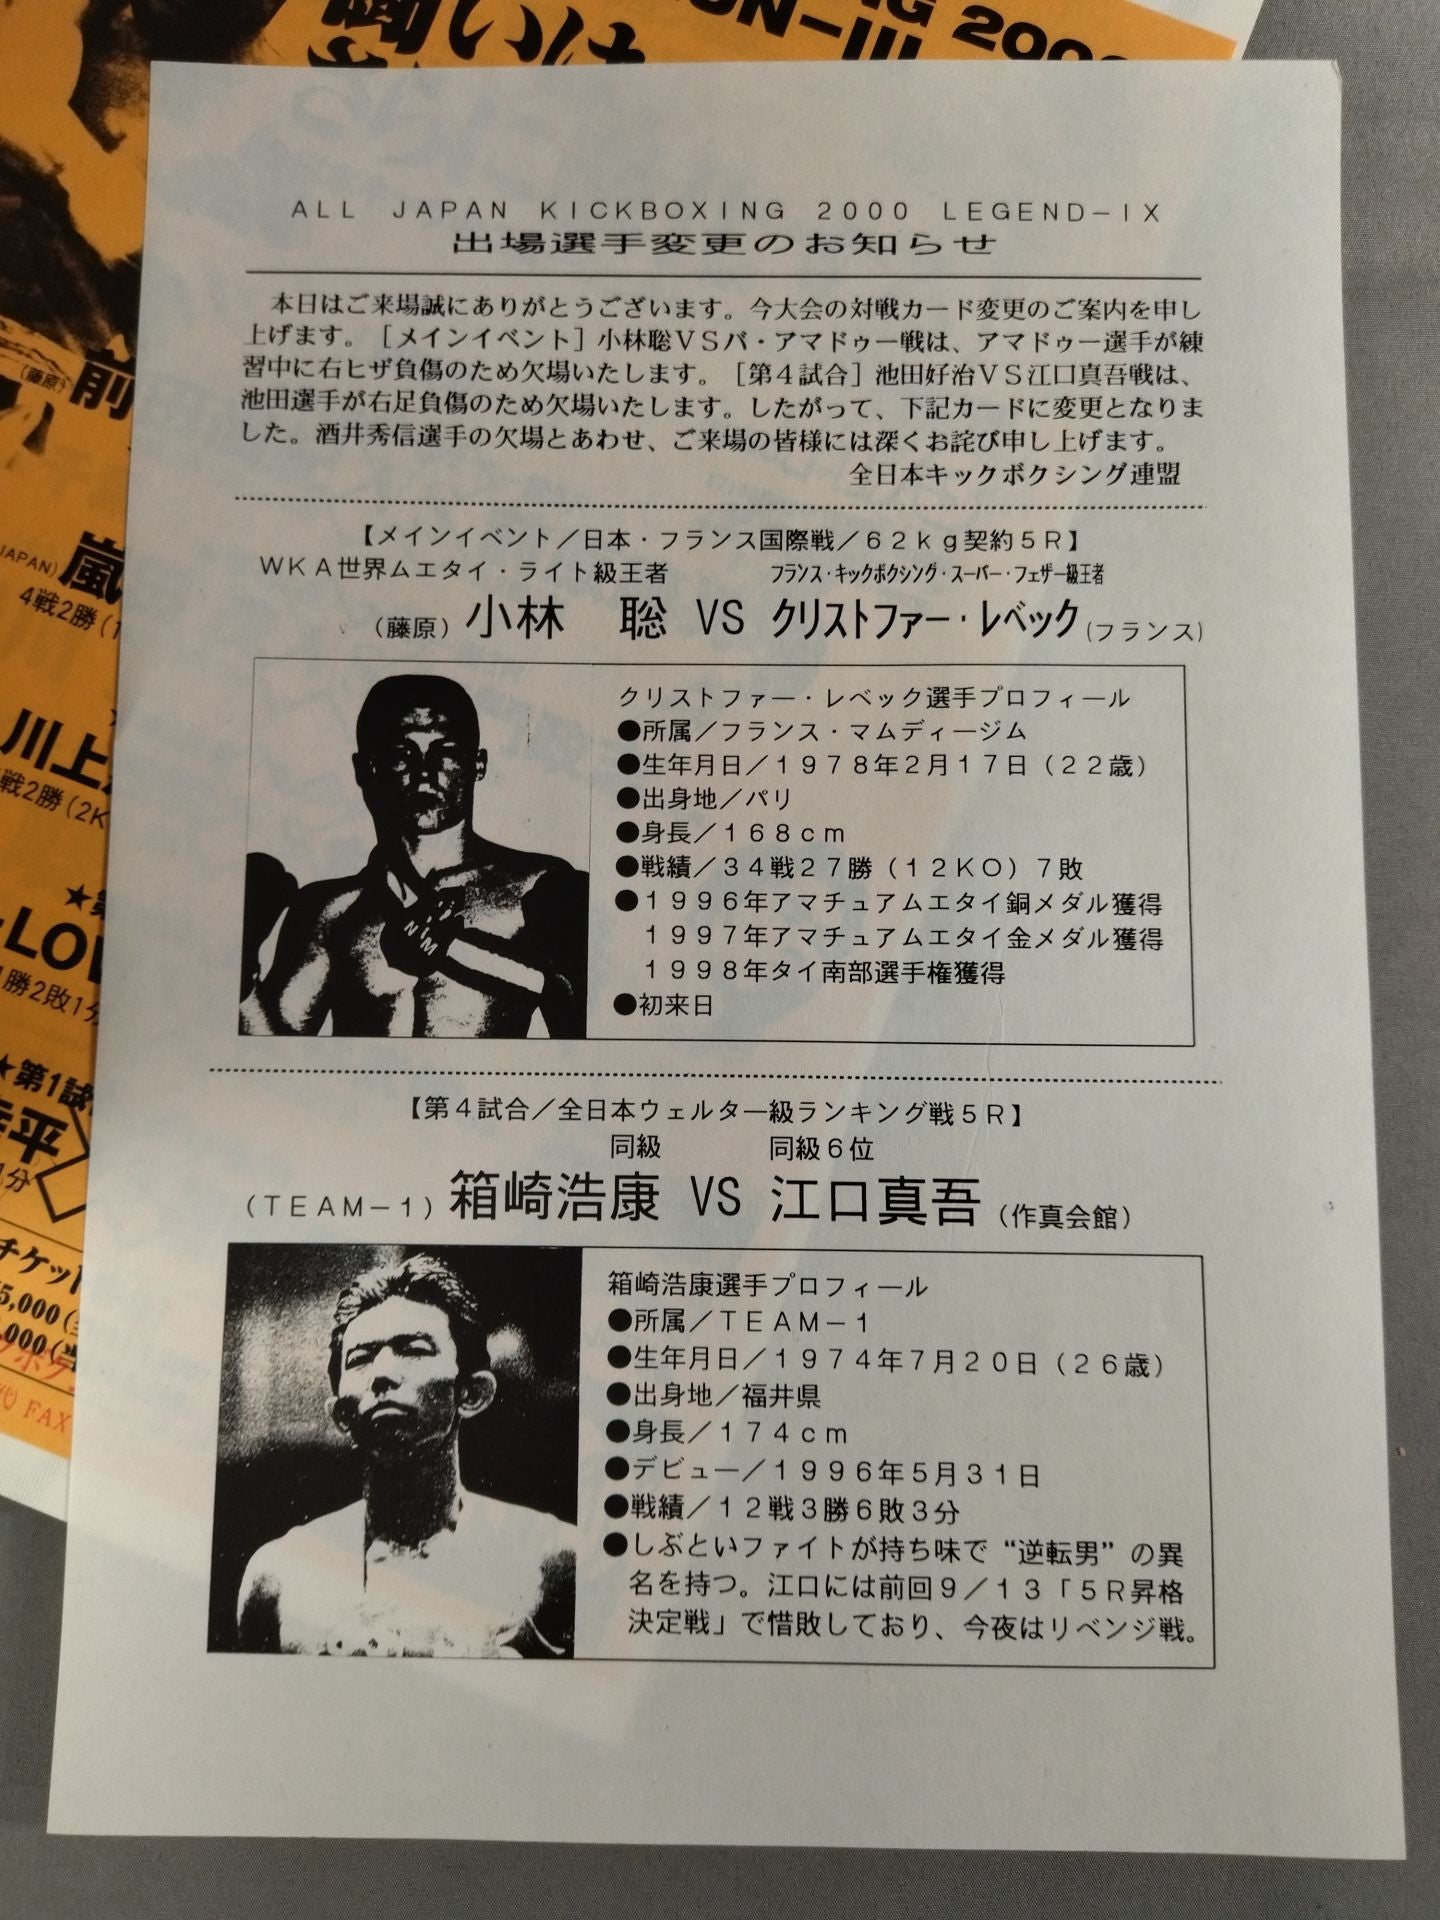 ALL JAPAN KICKBOXING 2000 LEGEND-IX
出場選手変更のお知らせ
本日はご来場誠にありがとうございます。今大会の対戦カード変更のご案内を申し
上げます。[メインイベント]小林聡VSバ・アマドゥー戦は、アマドゥー選手が練
習中に右ヒザ負傷のため欠場いたします。[第4試合]池田好治VS江口真吾戦は、
池田選手が右足負傷のため欠場いたします。したがって、下記カードに変更となりま
した。酒井秀信選手の欠場とあわせ、ご来場の皆様には深くお詫び申し上げます。
全日本キックボクシング連盟
【メインイベント/日本・フランス国際戦/62kg契約5R】
WKA世界ムエタイ・ライト級王者 フランス・キックボクシング・スーパー・フェザー級王者
(藤原)小林 聡 VS クリストファー・レベック(フランス)
クリストファー・レベック選手プロフィール
●所属/フランス・マムディージム
●生年月日/1978年2月17日(22歳)
●出身地/パリ
●身長/168cm
●戦績/34戦27勝(12KO)7敗
●1996年アマチュアムエタイ銅メダル獲得
1997年アマチュアムエタイ金メダル獲得
1998年タイ南部選手権獲得
●初来日
【第4試合/全日本ウェルター級ランキング戦5R】
同級 同級6位
(TEAM-1)箱崎浩康 VS 江口真吾(作真会館)
箱崎浩康選手プロフィール
●所属/TEAM-1
●生年月日/1974年7月20日(26歳)
●出身地/福井県
●身長/174cm
●デビュー/1996年5月31日
●戦績/12戦3勝6敗3分
●しぶといファイトが持ち味で“逆転男”の異
名を持つ。江口には前回9/13「5R昇格
決定戦」で惜敗しており、今夜はリベンジ戦。
(藤原)
前
JAPAN)嵐
4戦2勝(1
川上
戦2勝(2K
勝2敗1分
★第1試
平
チケット
5,000(
,000(
FAX